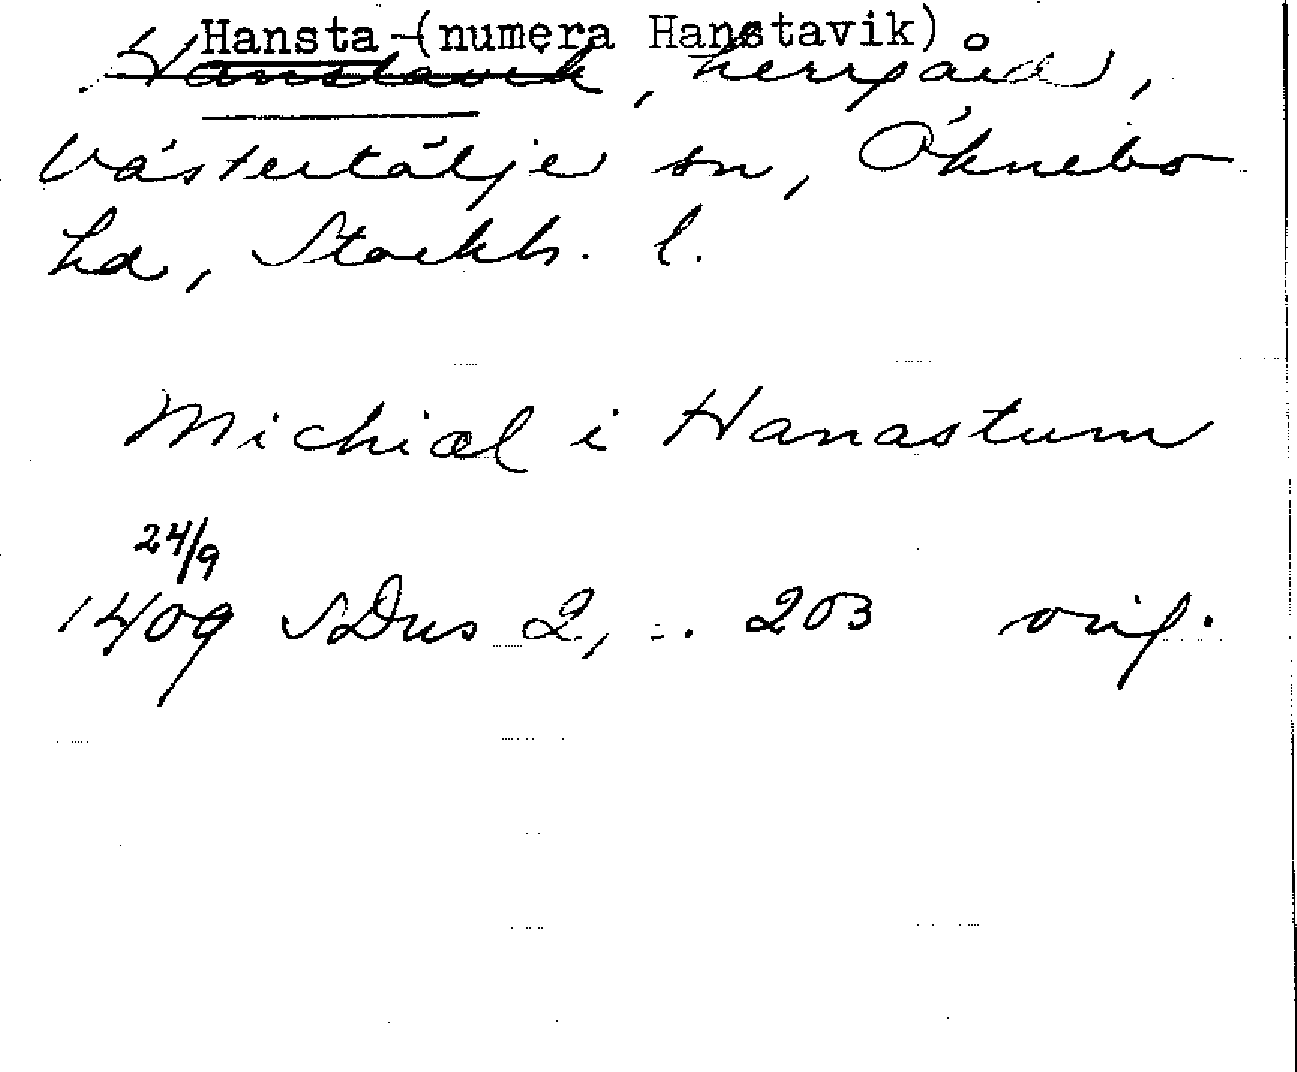 Hansta (numera Hanstavik)
Hanstavik, herrgård,
Västertälje sn, Öknebo
hd, Stockh. l.
Michiæl i Hanastum
24/9
1409 SDns 2, s. 203 orig.